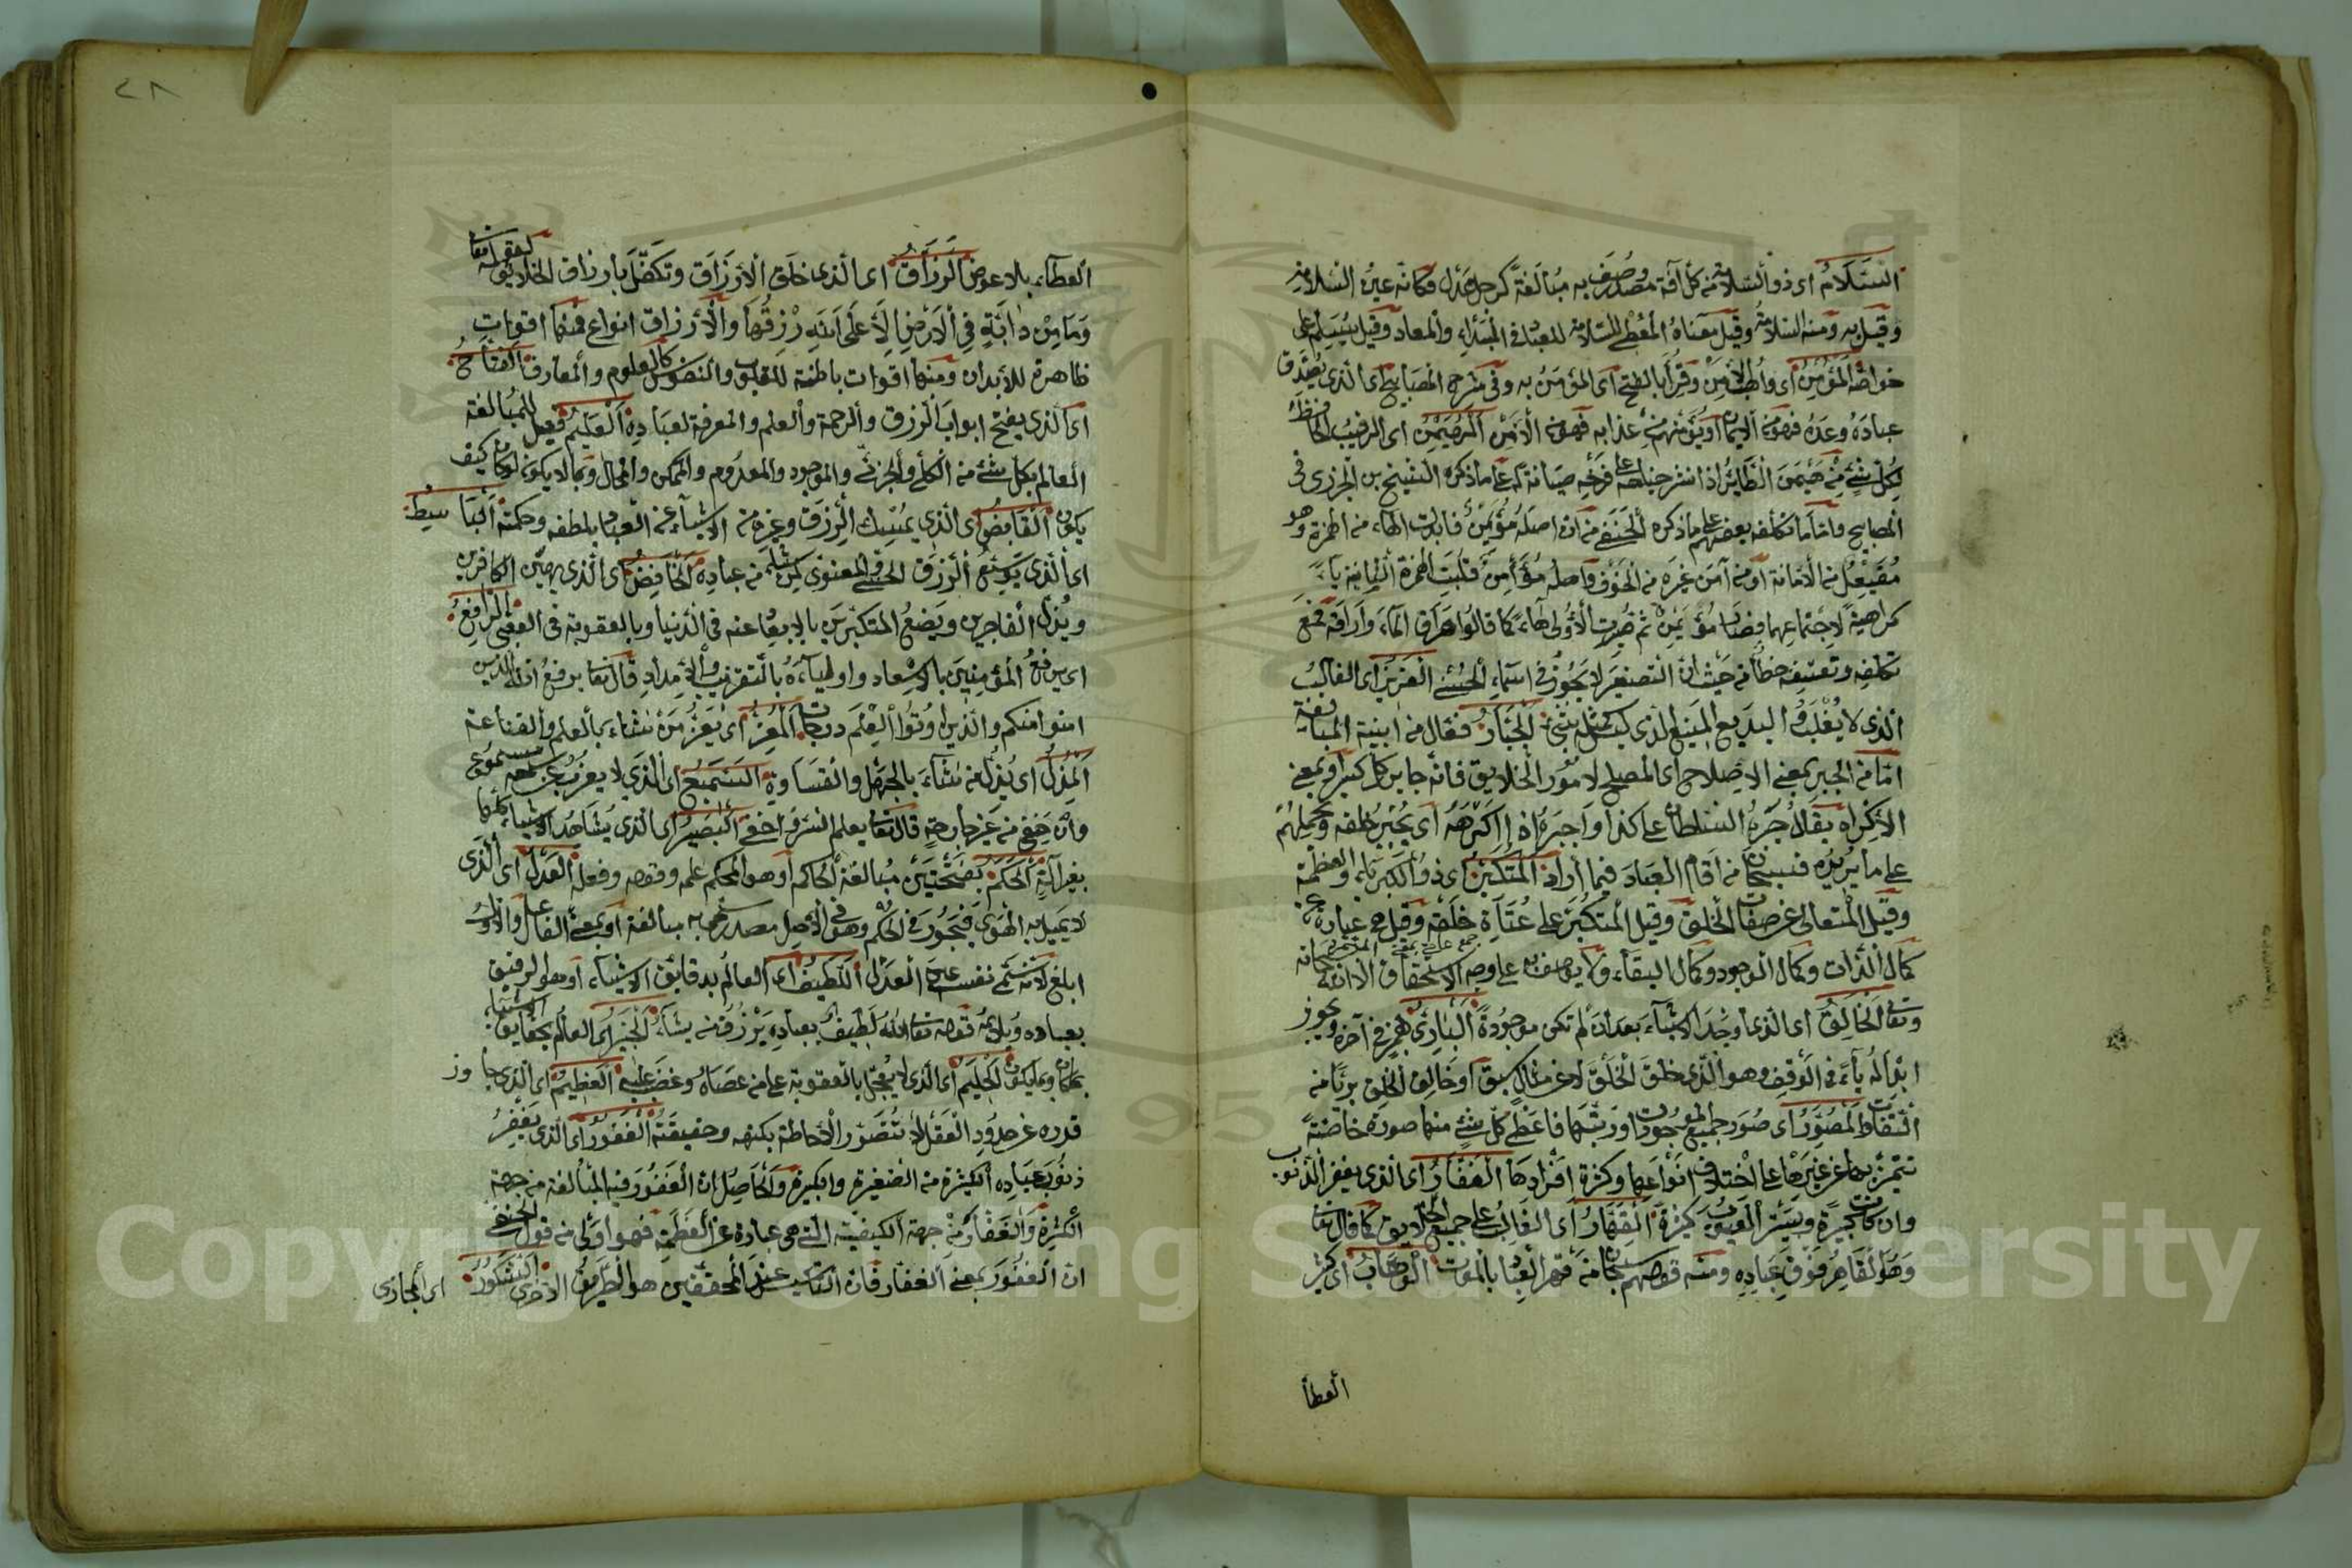 السَّلَامُ اى ذو السلامة من كل آفة مصدر وُصف به مُبَالَغَةً كرجل عدل فكانه عين السلامة
وقيل به ومنه السلامة وقيل معناه المُعْطِى السلامة للعباد فى المبتداء والمعاد وقيل يسلم على
خواصه المؤمن اى واهب الامن وقرأ بالفتح اى المؤمَنُ به وفى شرح المصابيح اى الذى يصدق
عباده وعده فهو من الايمان او يؤمنهم من عذابه فهو من الأمن المهيمن اى الرقيب الحافظ
لكل شئ من هيمن الطائر اذا نشر جناحه على فرخه صيانة له على ما ذكره الشيخ بن الجزرى فى
المصابيح واما ما تكلفه بعضهم على ما ذكره الحنفى من ان اصله مُؤَيْمِنٌ فابدلت الهاء من الهمزة وهو
مُفَيْعِلٌ من الأمانة او من آمن غيره من الخوف واصله مُؤَأْمِنٌ قلبت الهمزة الثانية ياءً
كراهية لاجتماعهما فصار مُؤَيْمِنٌ ثم صُيِّرت الأولى هاءً كما قالوا هَرَاق الماء وأراقه فمع
تكلفه وتعسفه خطأ من حيث ان التصغير لا يجوز فى اسماء الحسنى العزيز اى الغالب
الذى لا يُغْلَب او البديع المنيع الذى ليس كمثله شئ الجبّار فعّال من ابنية المبالغة
امّا من الجبر بمعنى الاصلاح اى المصلح لامور الخلايق فانه جابر كل كسير او بمعنى
الاكراه يقال جَبَرَه السلطان على كذا واجبره اذا اكرهه اى يجبر خلقه ويحملهم
على ما يريده فسبحان من اقام العباد فيما أراد المتكبر اى ذو الكبرياء والعظمة
وقيل المتعالى عن صفات الخلق وقيل المتكبر على عُتَاة خلقه وقيل هى عبارة عن
كمال الذات وكمال الوجود وكمال البقاء ولا يوصف به على وجه الاستحقاق الا الله سبحانه
وتعالى الخَالِقُ اى الذى أوجد الاشياء بعد ان لم تكن موجودةً البارئ بهمز فى آخره ويجوز
ابداله ياءً فى الوقف وهو الذى خلق الخلق لا عن مثال سبق او خالق الخلق بريّا من
التفاوت المصوّر اى صوّر جميع الموجودات ورتبها فاعطى كل شئ منها صورة خاصّةً
تتميز بها عن غيرها على اختلاف انواعها وكثرة افرادها الغفّار اى الذى يغفر الذنوب
وان كانت كبيرة ويستر العيوب كثيرة القهّار اى الغالب على جميع الخلايق كما قال تعالى
وَهُوَ الْقَاهِرُ فَوْقَ عِبَادِهِ ومنه قولهم سبحان من قهر العباد بالموت الوهّاب اى كثير
العطا
٢٨
العطاء بلا عوض الرزّاقُ اى الذى خلق الأرزاق وتكفّل بأرزاق الخلائق لقوله تعالى
وَمَا مِنْ دَابَّةٍ فِى الْأَرْضِ إِلَّا عَلَى اللهِ رِزْقُهَا والأرزاق انواع فمنها اقوات
ظاهرة للأبدان ومنها اقوات باطنة للقلوب والنفوس كالعلوم والمعارف الفتّاحُ
اى الذى يفتح ابواب الرزق والرحمة والعلم والمعرفة لعباده العليم فعيل للمبالغة
العالم بكل شئ من الكلى والجزئى والموجود والمعدوم والممكن والمحال وبما لا يكون لو كان كيف
يكون القابضُ اى الذى يمسك الرزق وغيره من الاشياء عن العباد بلطفه وحكمته الباسِطُ
اى الذى يوسّع الرزق الحسى والمعنوى لمن يشاء من عباده الخافض اى الذى يهين الكافرين
ويُذلّ الفاجرين ويضعُ المتكبرين بالابعاد عنه فى الدنيا وبالعقوبة فى العقبى الرّافِعُ
اى يرفع المؤمنين بالاسعاد واولياءه بالتقريب والأمداد قال تعالى يرفع الله الذين
امنوا منكم والذين اوتوا العلم درجات المُعِزّ اى يعزّ من يشاء بالعلم والقناعة
المذلّ اى يذل من يشاء بالجهل والقساوة السَّمِيعُ اى الذى لا يعزب عن سمعه مسموع
وان خفى من غير جارحة قال تعالى يعلم السر واخفى البَصِيرُ اى الذى يشاهد الاشياء كلها
بغير آلةٍ الحَكَمُ بفتحتين مبالغة الحاكم او هو المحكم علمه وقوله وفعله العَدْلُ اى الذى
لا يميل به الهوى فيجور فى الحكم وهو فى الأصل مصدر سمى به مبالغة او بمعنى الفاعل والاول
ابلغ لانه سُمّى نفسه عين العدل اللطيف اى العالم بدقايق الاشياء او هو الرفيق
بعباده ويلايمه قوله تعالى اللهُ لَطِيفٌ بِعِبَادِهِ يَرْزُقُ مَن يشاءُ الخبير اى العالم بحقايق الاشياء
بما كان وما يكون الحَلِيمُ اى الذى لا يعجّل بالعقوبة على من عصاه وغضب عليه العظيمُ اى الذى جاوز
قدره عن حدود العقل لا تتصور الأحاطة بكنهه وحقيقته الغفور اى الذى يغفر
ذنوب عباده الكثيرة من الصغيرة والكبيرة والحاصل ان الغفور فيه المبالغة من جهة
الكثرة والغفار من جهة الكيفية التى هى عبارة عن العظمة فهو اولى من قول الحنفى
ان الغفور بمعنى الغفار فان التأسيس عند المحققين هو الطريق الاحرى الشَّكُورُ
اى المجازى
Copyright © King Saud University